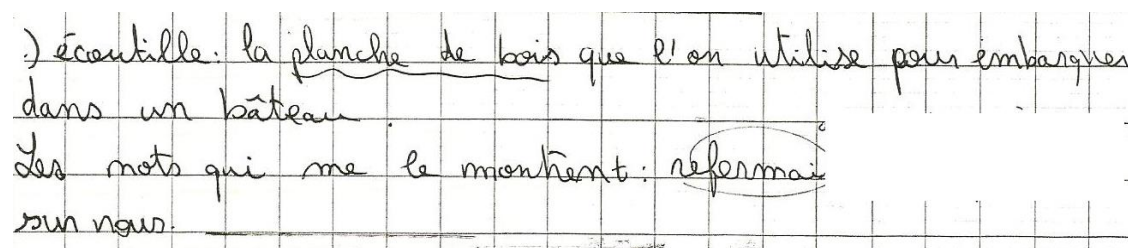 .) écoutille: la planche de bois que l'on utilise pour embarquer
dans un bâteau.
Les mots qui me le montrent: refermai
sur nous.